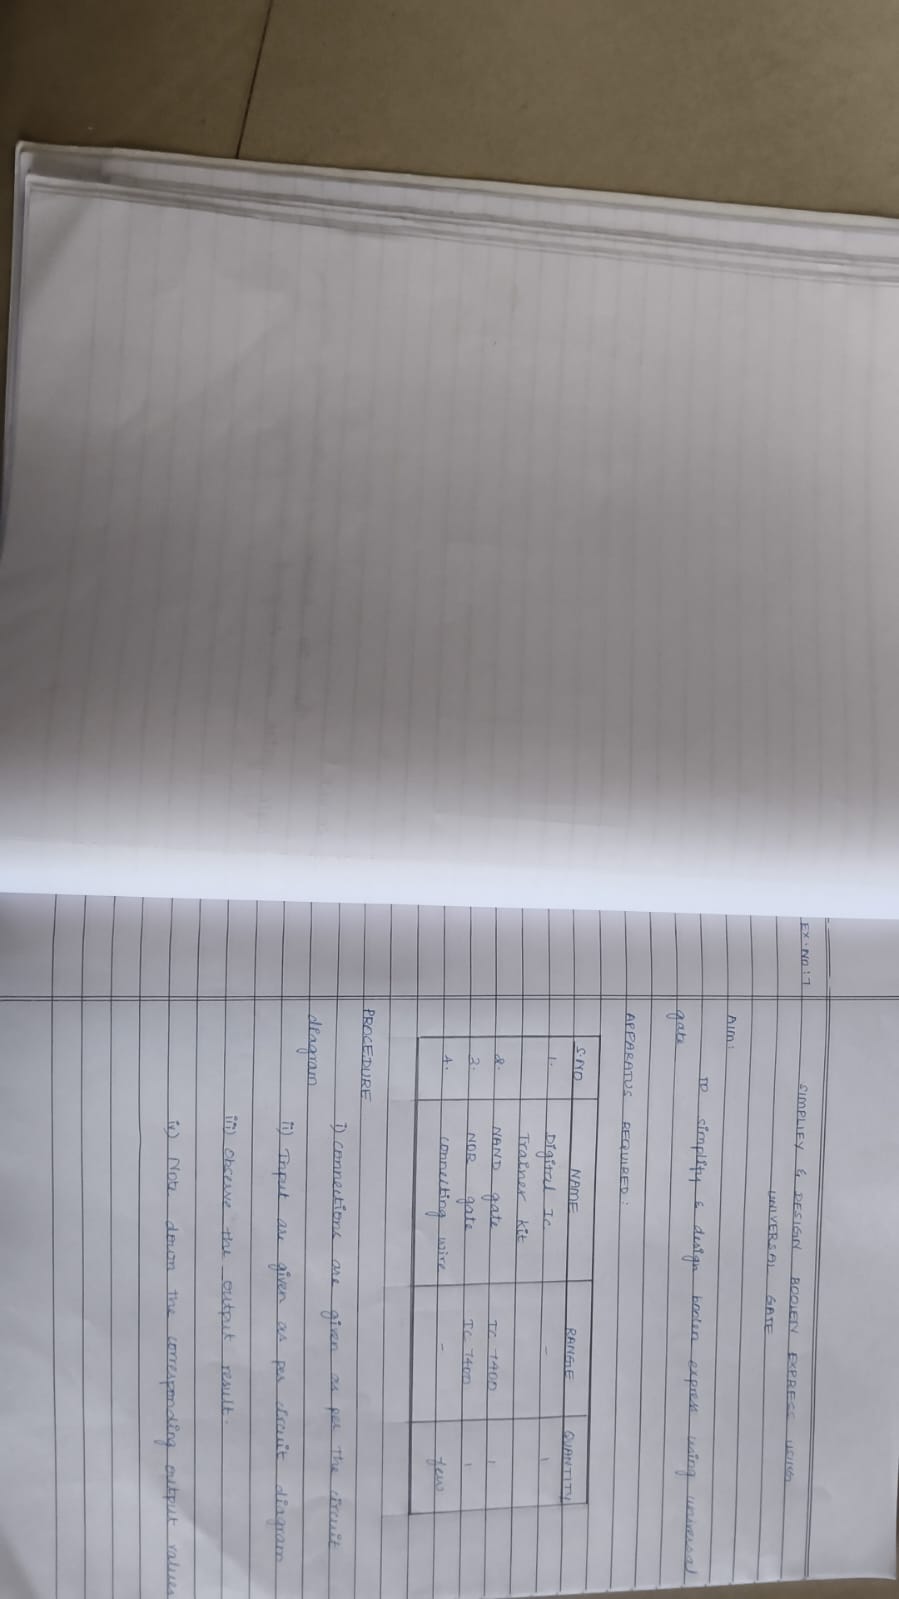 EX.NO:7
SIMPLIFY & DESIGN BOOLEN EXPRESS USING
UNIVERSAL GATE
AIM:
TO simplify & design boolen express using universal
gate
APPARATUS REQUIRED:
S.NO NAME RANGE QUANTITY
1. Digital Ic. - 1
Trainer kit
2. NAND gate IC 7400 1
3. NOR gate IC 7400 1
4. connecting wire - few
PROCEDURE
i) connections are given as per the circuit
diagram
ii) Input are given as per circuit diagram
iii) observe the output result.
iv) Note down the corresponding output values